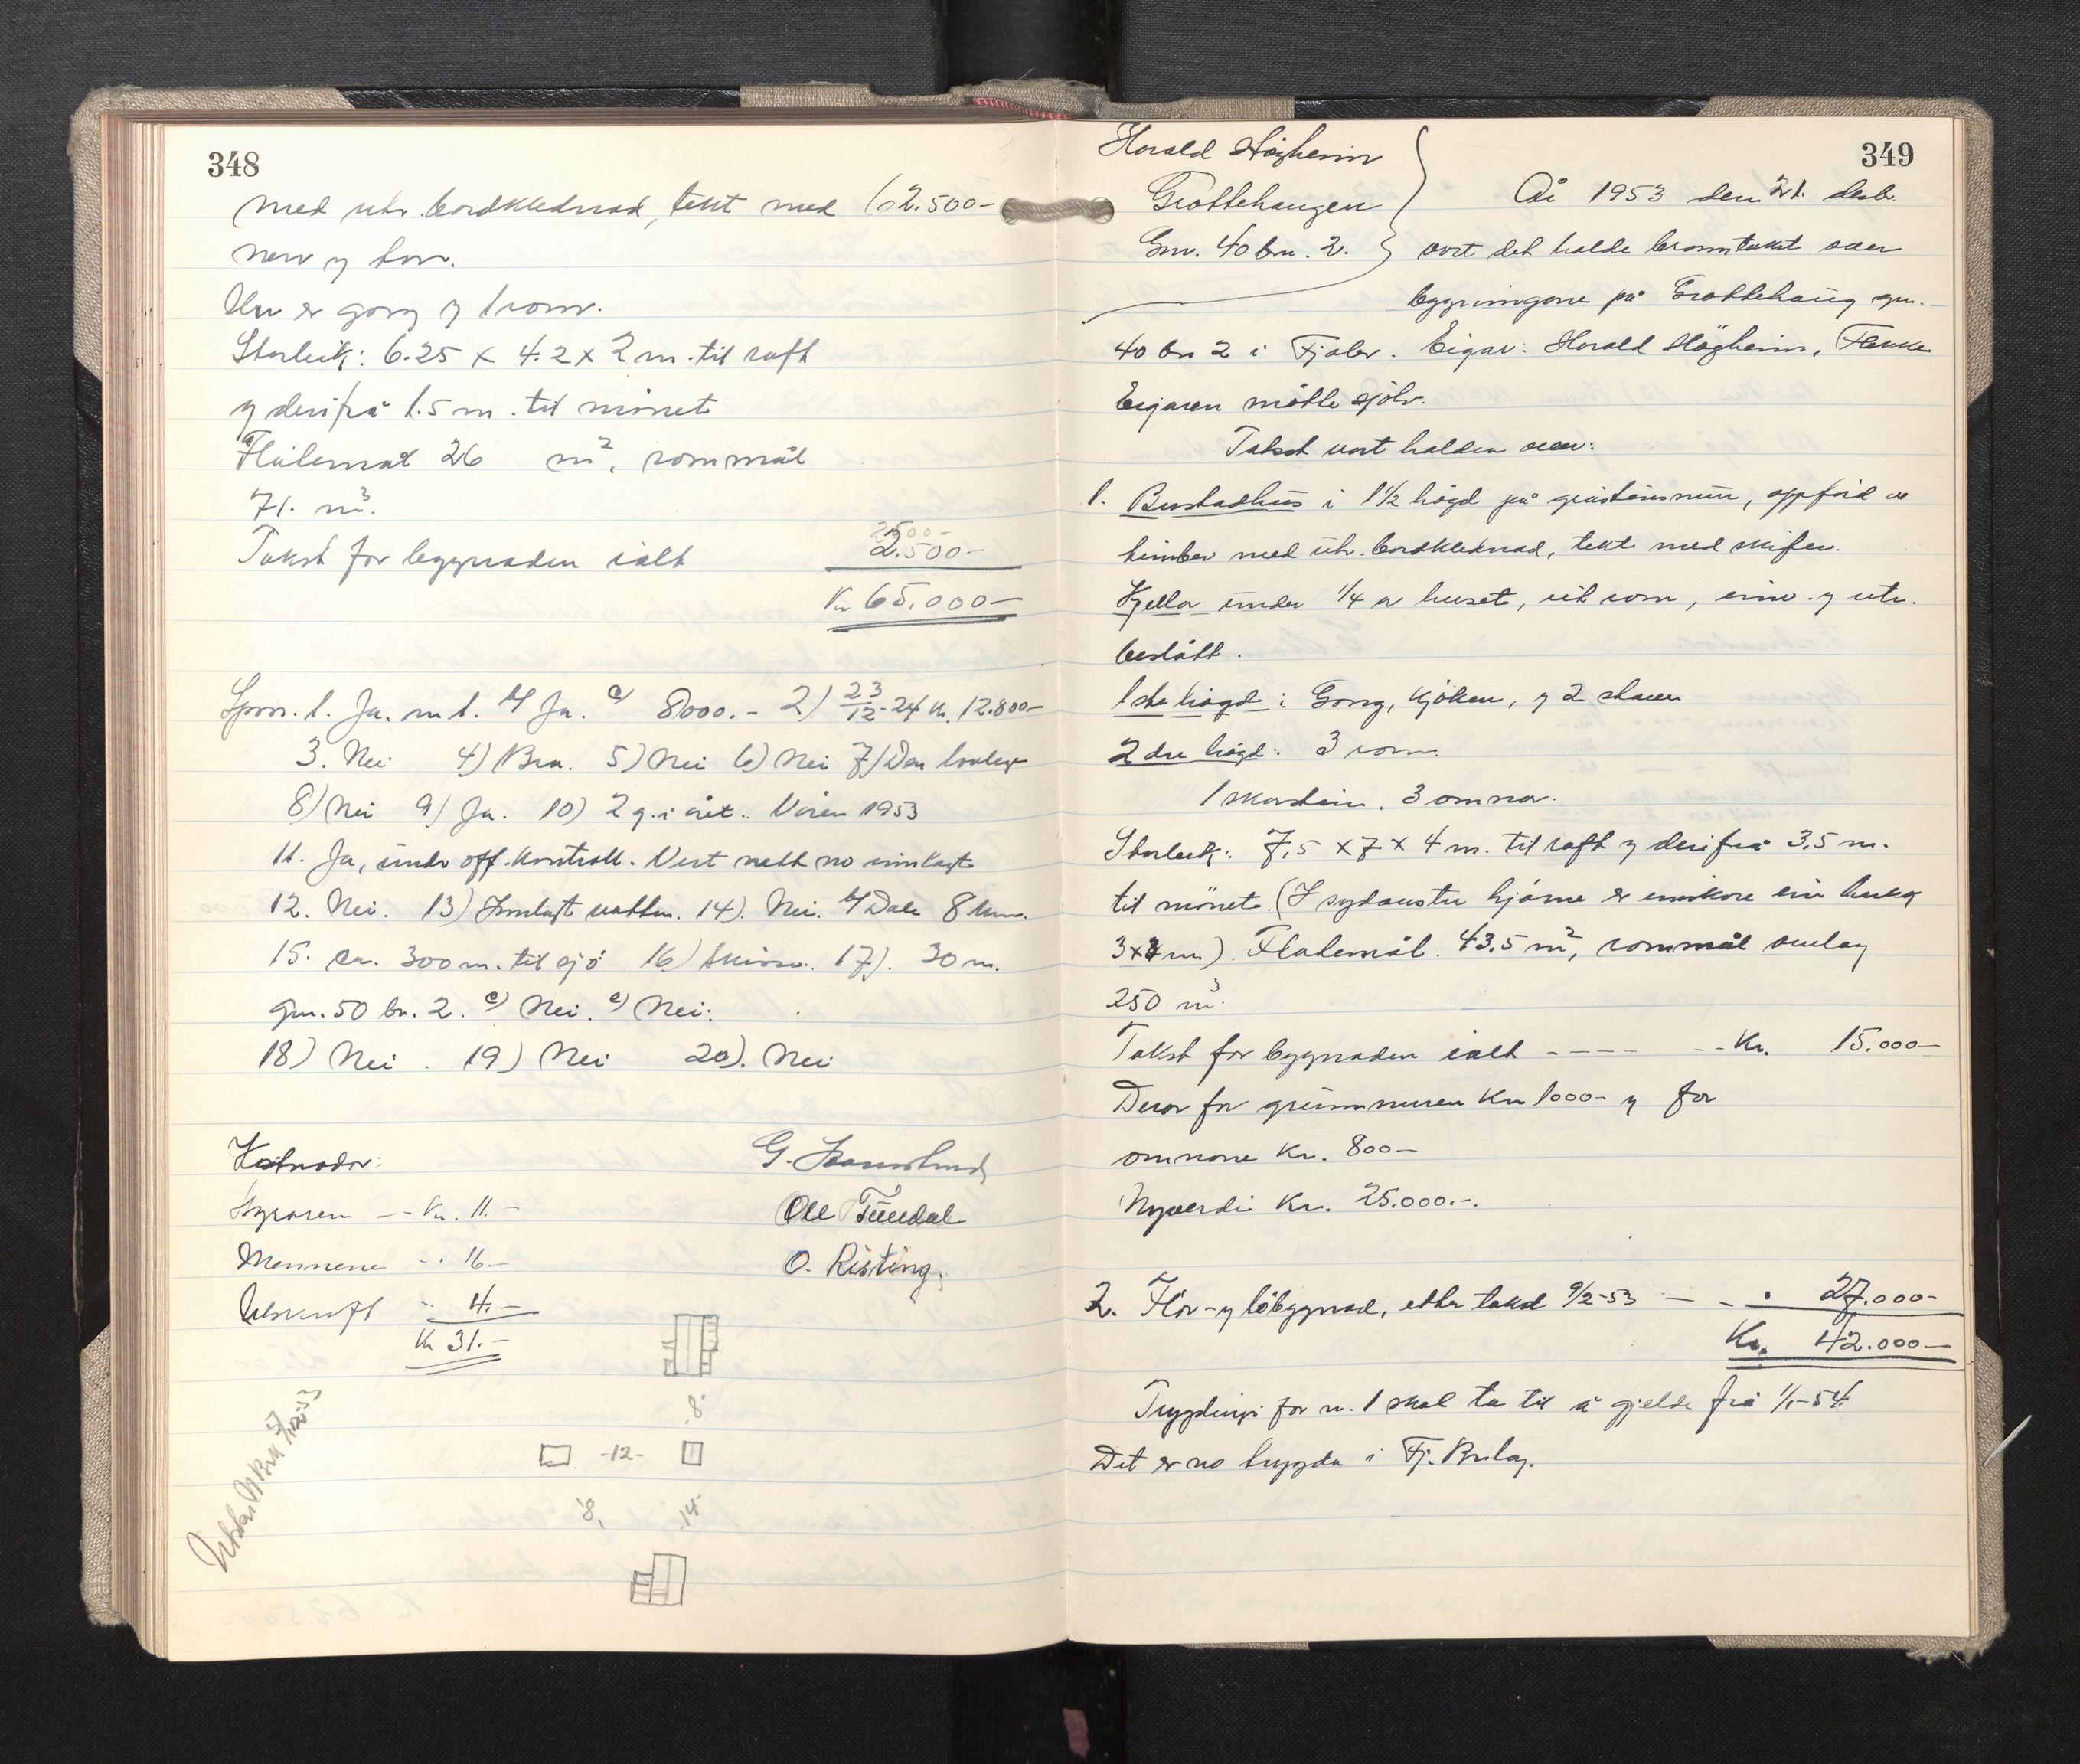 348
med utv. bordklednad, tekt med 62.500-
never og torv.
Uv er gong og 1 rom.
Storleik: 6.25 x 4.2 x 2 m. til raft
og derifrå 1.5 m. til mönet
Flatemål 26 m², rommål
71. m³.
2500-
Takst for bygnaden ialt 2.500-
Kr 65.000-
Spm. 1. Ja. nr 1. b) Ja. c) 8000.- 2) 23/12-24 kr. 12.800-
3. Nei 4) Bra. 5) Nei 6) Nei 7)
8) Nei 9) Ja. 10) 2 g. i året. Våren 1953
11. Ja, under off. kontroll. Vert nett no innlagt
12. Nei. 13) Innlagt vatten. 14). Nei. b) Dale 8 km.
15. ca. 300 m. til sjö 16) Skisse. 17). 30 m.
gnr. 50 br. 2. c) Nei. e) Nei.
18) Nei. 19) Nei 20). Nei
Kostnader:
Styraren -- Kr. 11.-
Mennene -- 16.-
Utskrift -- 4.-
Kr 31.-
G.
Ole Tundal
O. Risting.
8
-12-
8,
14-
349
Harald Högheim
Grottehaugen
Gnr. 40 bnr. 2.
År 1953 den 21. desbr.
vart det halde branntakst over
bygningane på Grottehaug gnr.
40 bnr 2 i Fjaler. Eigar: Harald Högheim, Flekke
Eigaren mötte sjölv.
Takst vart halden over:
1. Bustadhus i 1½ högd på gråsteinsmur, oppförd av
timber med utv. bordklednad, tekt med skifer.
Kjellar under 1/4 av huset, eit rom, innv. og utv.
beslått.
1ste högd: Gong, kjöken, og 2 stover
2dre högd: 3 rom.
1 skorstein. 3 omnar.
Storleik: 7,5 x 7 x 4 m. til raft og derifrå 3,5 m.
til mönet. (I sydaustre hjörne er innskore ein
3x3 m). Flatemål. 43.5 m², rommål omlag
250 m³.
Takst for bygnaden ialt ---- -- Kr. 15.000-
Derav for grunnmuren Kr 1000- og for
omnane Kr. 800-
Nyverdi Kr. 25.000.-.
2. Flor- og löbygnad, etter takst 9/2-53 - - " 27.000-
Kr. 42.000-
Trygdingi for nr. 1 skal ta til å gjelde frå 1/1-54
Det er no trygda i Fj. Brilag.